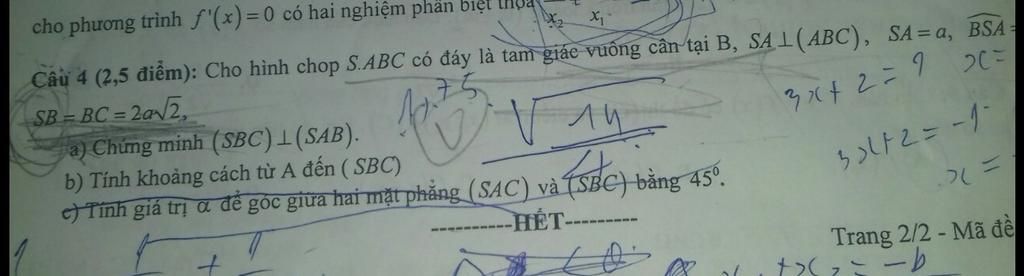 cho phương trình f'(x) = 0 có hai nghiệm phân biệt thỏa
x₂ x₁
Câu 4 (2,5 điểm): Cho hình chop S.ABC có đáy là tam giác vuông cân tại B, SA⊥(ABC), SA = a, BSA =
SB = BC = 2a√2,
a) Chứng minh (SBC)⊥(SAB).
b) Tính khoảng cách từ A đến ( SBC)
c) Tính giá trị α để góc giữa hai mặt phẳng (SAC) và (SBC) bằng 45⁰.
----------HẾT---------
Trang 2/2 - Mã đề
√14
3x+2 = 1
x =
3x+2 = -1
x =
= -b